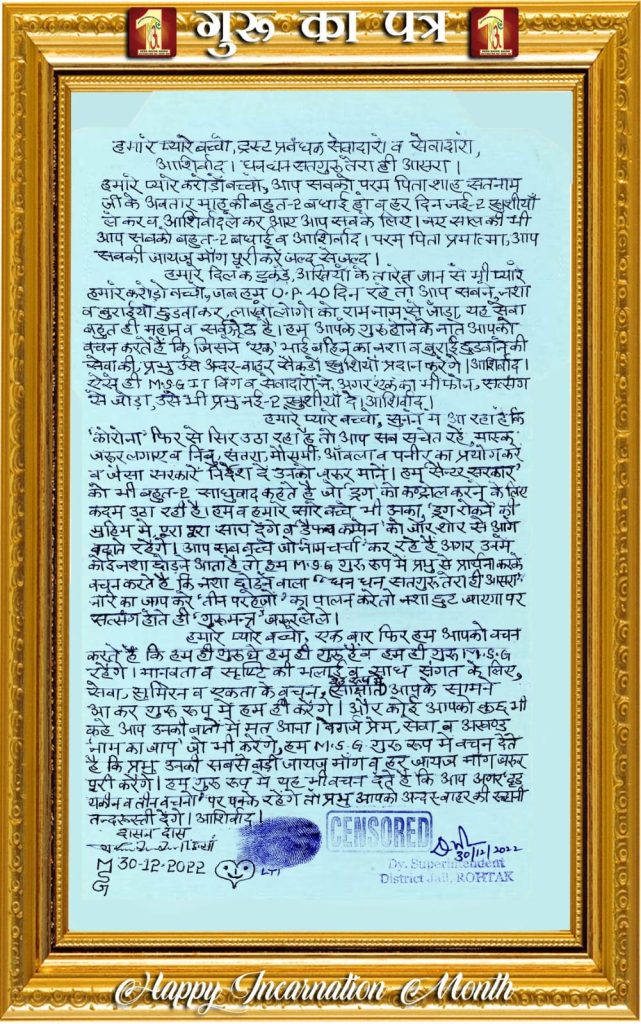 गुरु का पत्र
हमारे प्यारे बच्चो, ट्रस्ट प्रबंधक सेवादारो व सेवादारो,
आशिर्वाद। धन धन सतगुरु तेरा ही आसरा।
हमारे प्यारे करोड़ों बच्चो, आप सबको परम पिता शाह सतनाम
जी के अवतार माह की बहुत-2 बधाई हो व हर दिन नई-2 खुशीयाँ
लेकर व आशिर्वाद लेकर आए आप सबके लिए। नए साल की भी
आप सबको बहुत-2 बधाई व आशिर्वाद। परम पिता प्रमात्मा, आप
सबकी जायज़ माँग पूरी करे जल्द से जल्द।
हमारे दिल के टुकड़े, आँखियाँ के तारे व जान से भी प्यारे
हमारे करोड़ो बच्चो, जब हम U.P. 40 दिन रहे तो आप सबने, नशा
व बुराईयाँ छुड़वाकर, लाखों लोगो को, रामनाम से जोड़ा, यह सेवा
बहुत ही महान व सर्वश्रेष्ठ है। हम आपके गुरु होने के नाते आपको
वचन करते हैं कि जिसने 'एक' भाई बहिन का नशा व बुराई छुड़वाने की
सेवा की, प्रभु उसे अन्दर-बाहर सैंकड़ों खुशियाँ प्रदान करेंगे। आशिर्वाद।
ऐसे ही M.S.G IT विंग व सेवादारों ने, अगर एक का भी फोन, सत्संग
से जोड़ा, उसे भी प्रभु नई-2 खुशीयाँ दे। आशिर्वाद।
हमारे प्यारे बच्चो, सुनने में आ रहा है कि
'कोरोना' फिर से सिर उठा रहा है तो आप सब सचेत रहें, मास्क
जरुर लगाए व निंबू, संतरा, मोसमी, आँवला व पनीर का प्रयोग करे
व जैसा सरकारें निर्देश दें उनको जरुर माने। हम सेन्टर सरकार
को भी बहुत-2 साधुवाद कहते हैं जो 'ड्रग' को कन्ट्रोल करने के लिए
कदम उठा रही है। हम व हमारे सारे बच्चे भी उनका, 'ड्रग रोकने' की
मुहिम में, पूरा पूरा साथ देंगे व डैप्थ कम्पेन को जोर शोर से आगे
बढ़ाते रहेंगे। आप सब बच्चे जो नामचर्चा कर रहे हैं अगर उनमे
कोई नशा छोड़ने आता है तो हम M.S.G गुरु रूप में प्रभु से प्रार्थना करके
वचन करते है, कि नशा छोड़ने वाला "धन धन सतगुरु तेरा ही आसरा"
नारे का जाप करे 'तीन परहेजों' का पालन करे तो नशा छुट जाएगा पर
सत्संग होते ही 'गुरुमन्त्र' जरूर लेले।
हमारे प्यारे बच्चो, एक बार फिर हम आपको वचन
करते हैं कि हम ही गुरु थे हम ही गुरु हैं व हम ही गुरु M.S.G
रहेंगे। मानवता व सृष्टि की भलाई व साध संगत के लिए,
सेवा, सुमिरन व एकता के वचन, गुरु रूप में साक्षात आपके सामने
आ कर गुरु रूप में हम ही करेंगे। और कोई आपको कुछ भी
कहे आप उनकी बातों में मत आना। बेगर्ज प्रेम, सेवा व अखण्ड
'नाम का जाप' जो भी करेंगे, हम M.S.G गुरु रूप में वचन देते
है कि प्रभु उनकी सबसे बड़ी जायज़ माँग व हर जायज़ माँग जरुर
पूरी करेंगे। हम गुरु रूप में यह भी वचन देते हैं कि आप अगर 'दृढ़
यकीन व तीन वचनों' पर पक्के रहेंगे तो प्रभु आपको अन्दर-बाहर की रूहानी
तन्दरुस्ती देंगे। आशिर्वाद।
दासन दास
MSG 30-12-2022
LTI
CENSORED
30/12/2022
Dy. Superintendent
District Jail, ROHTAK
Happy Incarnation Month